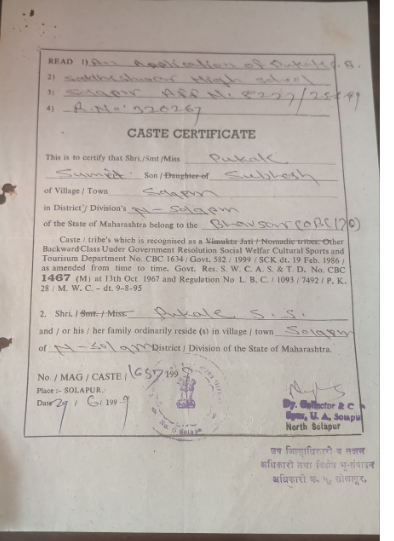 READ 1) An Application of Pukale S. S.
2) Siddheshwar High School
3) Solapur
4) R. No. 320267
CASTE CERTIFICATE
This is to certify that Shri./Smt/Miss Pukale
Sumit Son / Daughter of Subhash
of Village / Town Solapur
in District / Division's N-Solapur
of the State of Maharashtra belong to the Bhavsar
Caste / tribe's which is recognised as a Vimukta Jati / Nomadic tribes. Other
Backward Class Under Government Resolution Social Welfar Cultural Sports and
Tourisum Department No. CBC 1634 / Govt. 582 / 1999 / SCK dt. 19 Feb. 1986 /
as amended from time to time. Govt. Res. S. W. C. A. S. & T. D. No. CBC
1467 (M) at 13th Oct 1967 and Regulation No L. B. C. / 1093 / 7492 / P. K.
28 / M. W. C. - dt. 9-8-95
2. Shri. / Smt. / Miss. Pukale S. S.
and / or his / her family ordinarily reside (s) in village / town Solapur
of N-Solapur District / Division of the State of Maharashtra.
No. / MAG / CASTE / 199
Place :- SOLAPUR.
Date 29 / 6 / 1999
Dy. Collector & C
North Solapur
उप जिल्हाधिकारी व सक्षम
अधिकारी तथा विशेष भू-संपादन
अधिकारी क्र. सोलापूर.